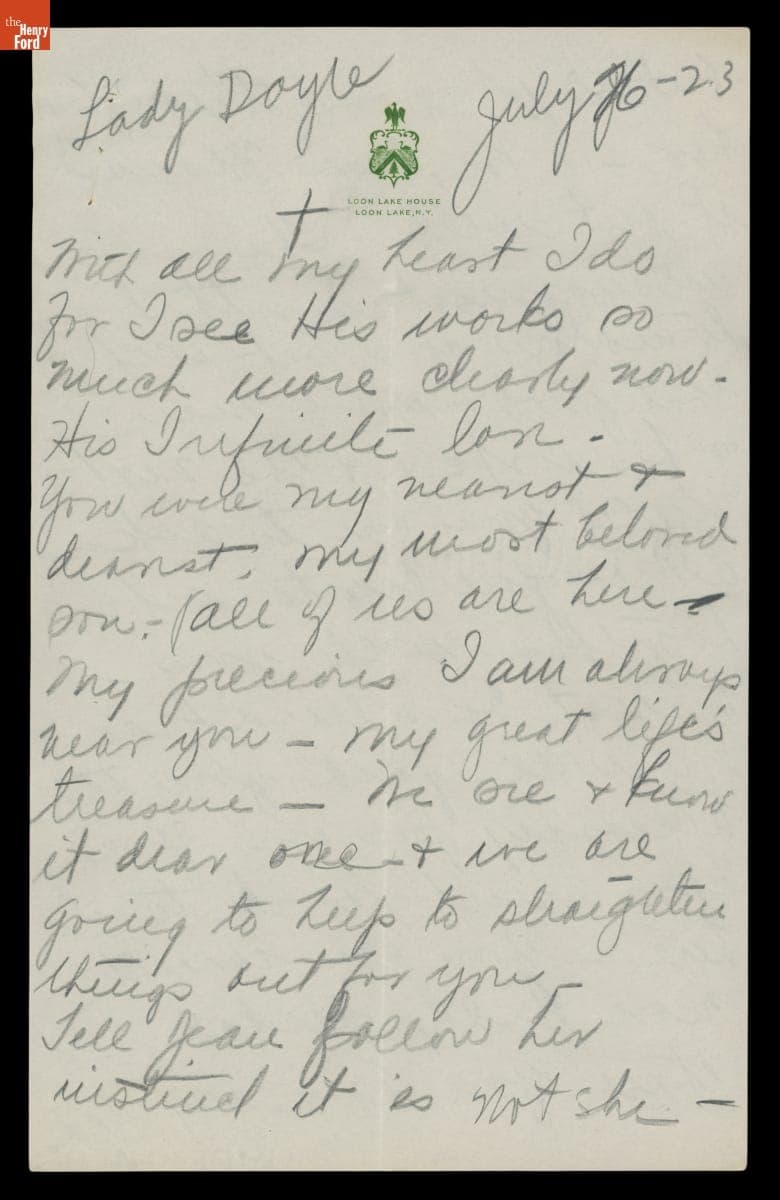 the
Henry
Ford
Lady Doyle
July 26-23
LOON LAKE HOUSE
LOON LAKE, N.Y.
With all my heart I do
for I see His works so
much more clearly now -
His Infinite love -
You were my nearest &
dearest, my most beloved
son - (all of us are here -
My precious I am always
near you - my great life's
treasure - We see & know
it dear one - & we are
going to help to straighten
things out for you -
Tell Jean follow her
instinct it is not she -